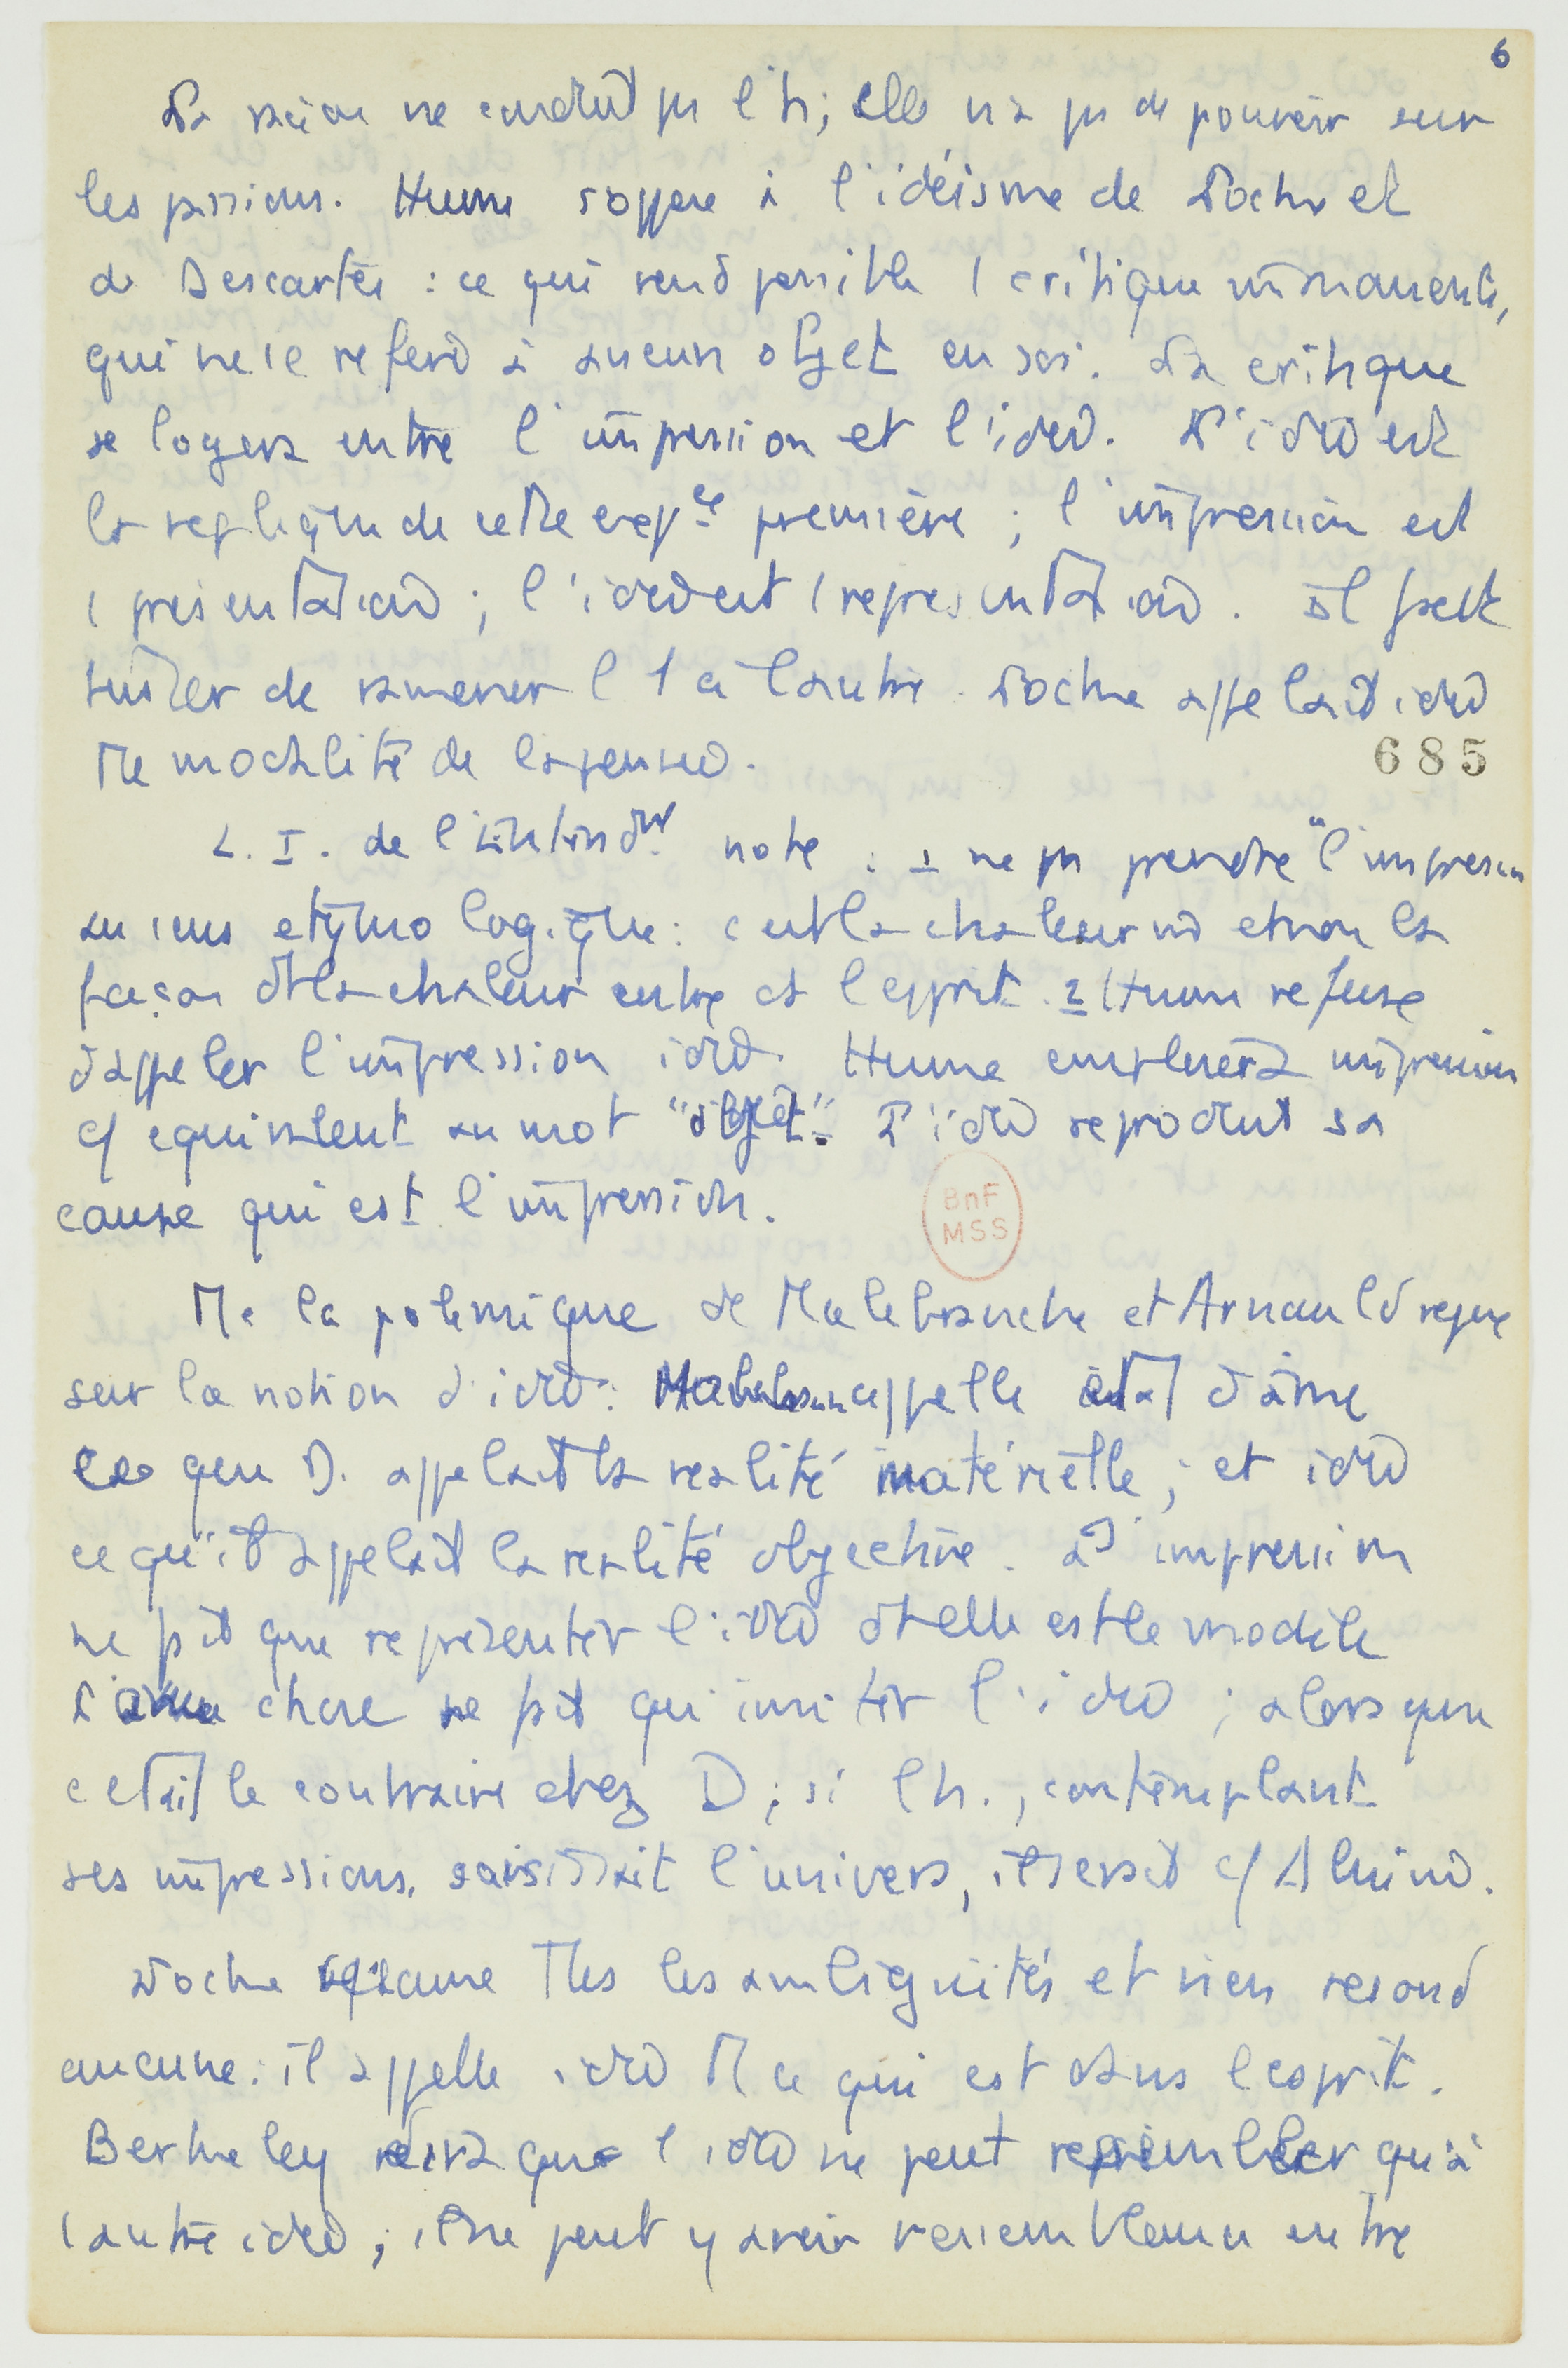 6
La raison ne conduit pas l'h; elle n'a pas de pouvoir sur
les passions. Hume s'oppose à l'idéisme de Locke et
de Descartes : ce qui rend possible 1 critique immanente,
qui ne se refère à aucun objet en soi. La critique
se logera entre l'impression et l'idée. L'idée est
la replique de cette expce première ; l'impression est
1 présentation ; l'idée est 1 représentation. Il faut
tenter de ramener l'1 à l'autre. Locke appelait idée
Tte modalité de la pensée.
685
L. I. de l'Entendt note : 1 ne pas prendre "l'impression
au sens etymologique : c'est la chaleur et non la
façon dt la chaleur entre ds l'esprit. 2 Hume refuse
d'appeler l'impression idée. Hume emploiera impression
c/ equivalent au mot "objet". L'idée reproduit sa
cause qui est l'impression.
BnF
MSS
Tte la polemique de Malebranche et Arnauld
sur la notion d'idée : Malebran appelle état d'âme
ce que D. appelait la realité matérielle ; et idée
ce qu'il appelait la realité objective. L'impression
ne fait que représenter l'idée dt elle est le modèle
chose ne fait qu'imiter l'idée ; alors que
c'etait le contraire chez D ; si l'h., contemplant
ses impressions, saisissait l'univers, il serait c/
Locke Ttes les ambiguités et n'en resoud
aucune : il appelle idée Tt ce qui est dans l'esprit.
Berkeley dira que l'idée ne peut ressembler qu'à
1 autre idée ; il ne peut y avoir ressemblance entre